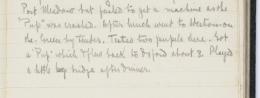 Port Meadow but failed to get a machine as the
"Pup" was crashed. After lunch went to Weston-on-
the-Green by tender. Tested two pupils here. Got
a "Pup" which I flew back to Oxford about 3. Played
a little bridge after dinner.